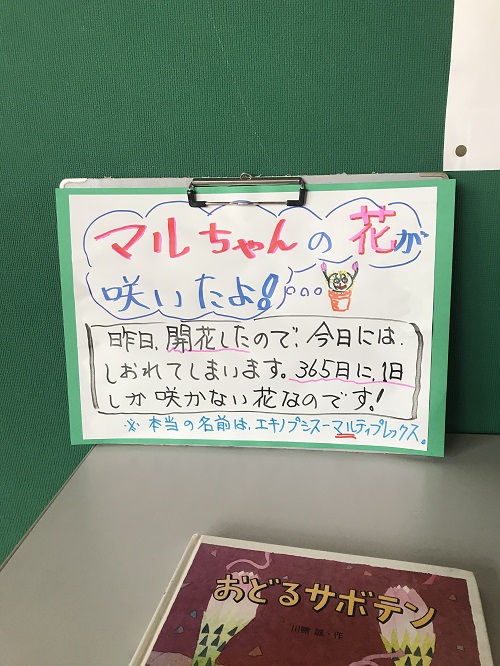 マルちゃんの花が
咲いたよ!
昨日、開花したので、今日には、
しおれてしまいます。365日に、1日
しか咲かない花なのです!
※本当の名前は、エキノプシスーマルティプレックス。
おどるサボテン
川端 誠・作